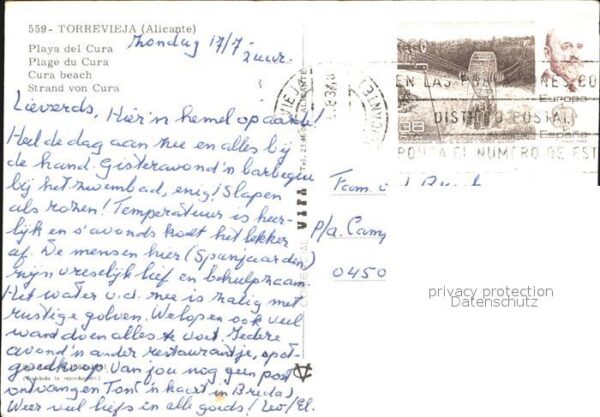 559 - TORREVIEJA (Alicante)
Playa del Cura
Plage du Cura
Cura beach
Strand von Cura
Zondag 17/7
Lieverds, Hier'n hemel op aarde!
Heel de dag aan zee en alles bij
de hand. Gisteravond'n barbeque
bij het zwembad, enig! Slapen
als rozen! Temperatuur is heer-
lijk en s'avonds koelt het lekker
af. De mensen hier (Spanjaarden)
zijn vreselijk lief en behulpzaam.
Het water v.d. zee is zalig met
rustige golven. We lopen ook veel
want doen alles te voet. Iedere
avond'n ander restaurantje, spot-
goedkoop. Van jou nog geen post
ontvangen
Weer veel liefs in alle goeds!
VIPA
Fam.
p/a. Camp
0450
EN LAS
DISTRITO POSTAL
EL NUMERO DE
Europa
España
privacy protection
Datenschutz